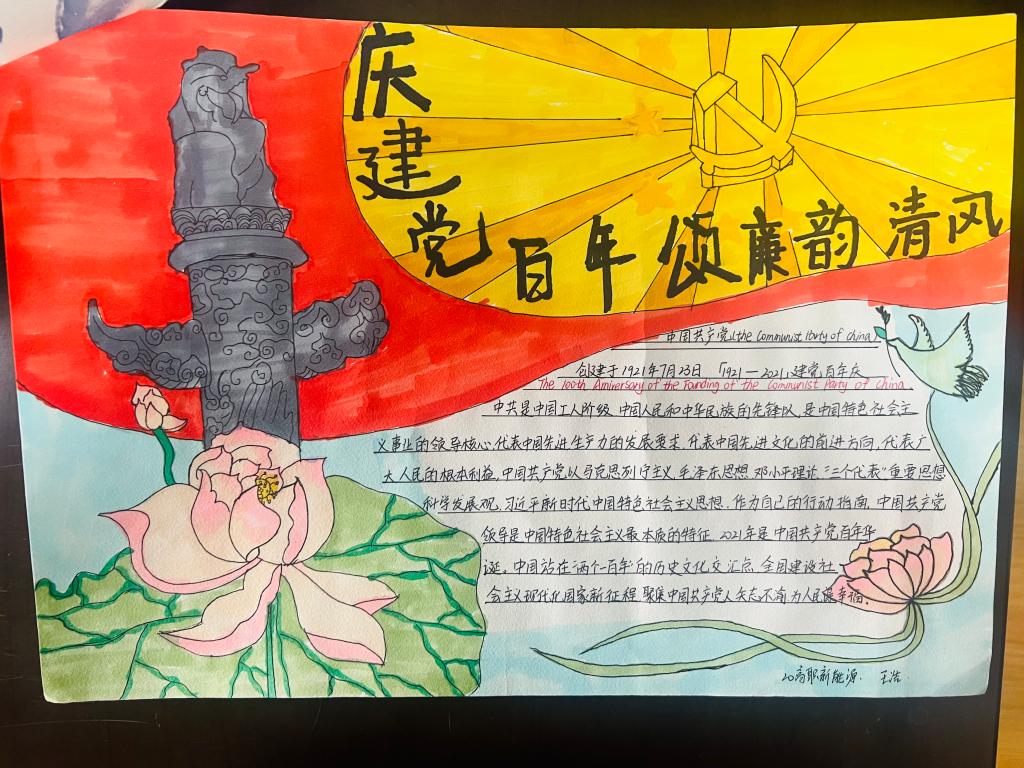 庆建党百年颂廉韵清风
中国共产党(the Communist Party of China)
创建于1921年7月23日 「1921—2021」建党百年庆
The 100th Anniversary of the Founding of the Communist Party of China
中共是中国工人阶级 中国人民和中华民族的先锋队,是中国特色社会主
义事业的领导核心,代表中国先进生产力的发展要求,代表中国先进文化的前进方向,代表广
大人民的根本利益,中国共产党以马克思列宁主义,毛泽东思想,邓小平理论“三个代表”重要思想
科学发展观,习近平新时代中国特色社会主义思想,作为自己的行动指南,中国共产党
领导是中国特色社会主义最本质的特征,2021年是中国共产党百年华
诞,中国站在“两个一百年”的历史文化交汇点,全国建设社
会主义现代化国家新征程,聚集中国共产党人矢志不渝为人民谋幸福,
20高职新能源. 王浩.